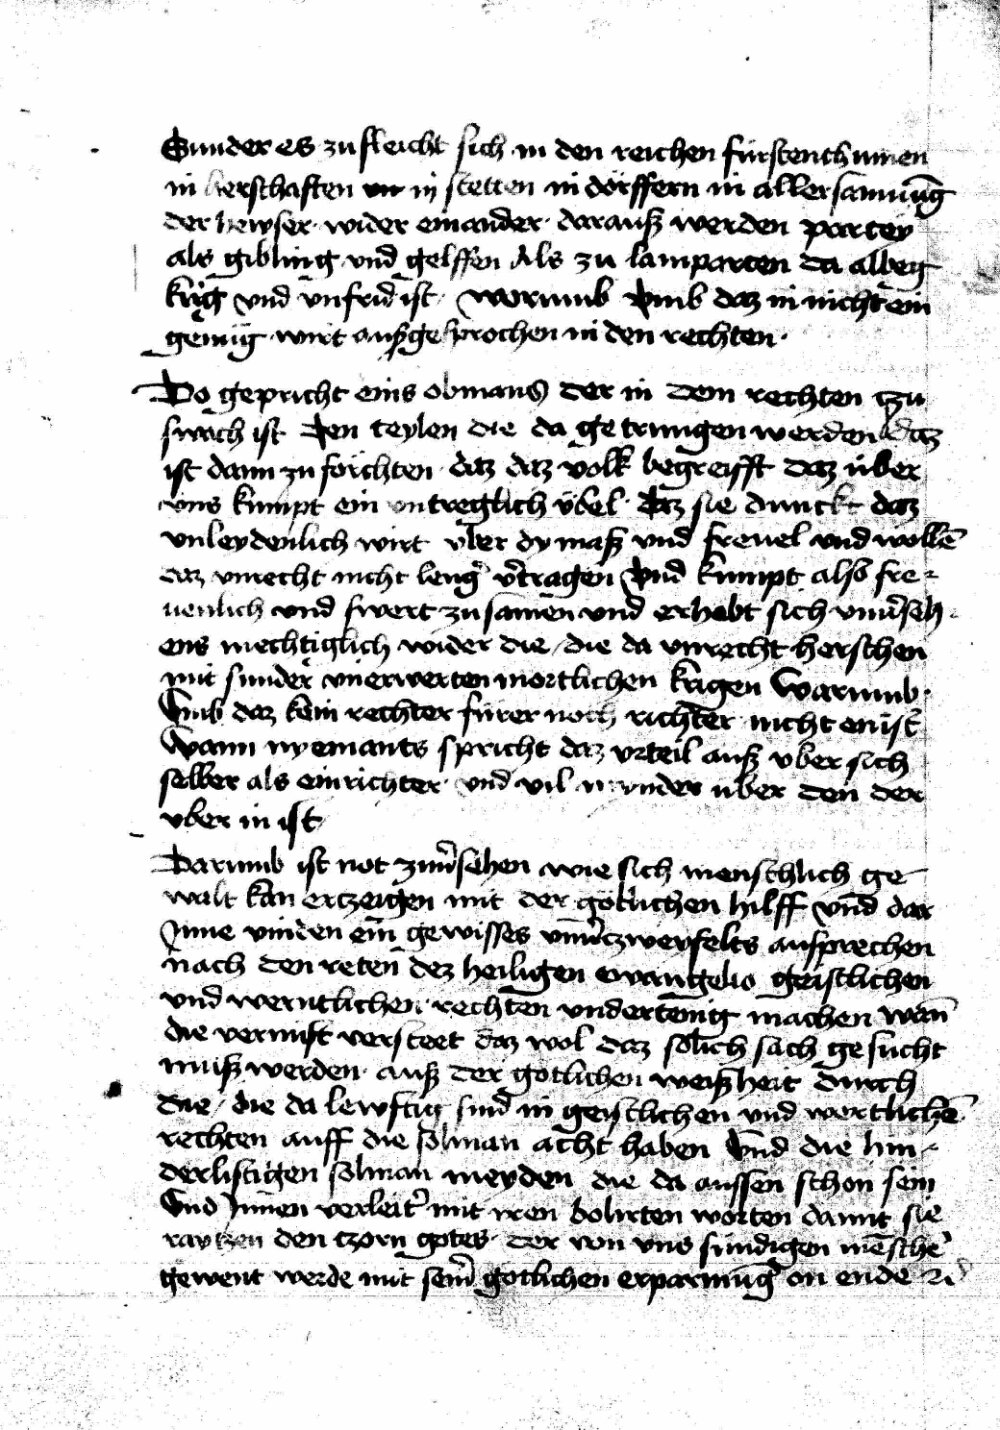 Sunder es zu sleicht sich in den reichen fürstenthumen
in herschaften in stetten in dörffern in aller samnūg
der hewser wider einander darauß werden partey
als gibling vnd gelffen Als zu lamparten da albeg
krig vnd vnfrid ist Worumb vmb daz in nicht ein
genüg wirt auß gesprochen in den rechten
Do gepricht eins obmans der in dem rechten tzu
swach ist Den teylen die da getrungen werden daz
ist dann zu förchten daz daz volk begreifft daz über
vns kumpt ein vntreglich vbel daz sie dunckt daz
vnleydenlich wirt vber dy maß vnd freuel vnd wollē
daz vnrecht nicht leng̉ vt̉ragen Vnd kumpt also fre-
uenlich vnd swert zu samen vnd erhebt sich vnủseh-
ens mechtiglich wider die die da vnrecht herschen
mit sunder vnerwerten mortlichen krigen Warumb
Vmb daz kein rechter fürer noch richter nicht enist
Wann nyemants spricht daz vrteil auß vber sich
selber als ein richter vnd vil mynder über den der
vber in ist
Darumb ist not zuủsehen wie sich menschlich ge-
walt kan ertzeigen mit der götlichen hilff vnd dar
Inne vinden ein gewisses vnủtzweyfelts aussprechen
nach den reten dez heiligen ewangelio geistlichen
vnd werntlichen rechten vndertenig machen wan̄
die vernuft versteet daz wol daz solich sach gesucht
muß werden auß der götlichen weißheit durch
die die da lewftig sind in geistlichen vnd wertlichē
rechten auff die solman acht haben Vnd die hin-
derlistigen solman meyden die da aussen schon sein
Vnd Innen verleit̉ mit iren worten damit sie
raytzen den tzorn gotes der von vns sündigen mēschē
gewent werde mit sein̉ götlichen erparmūg on ende